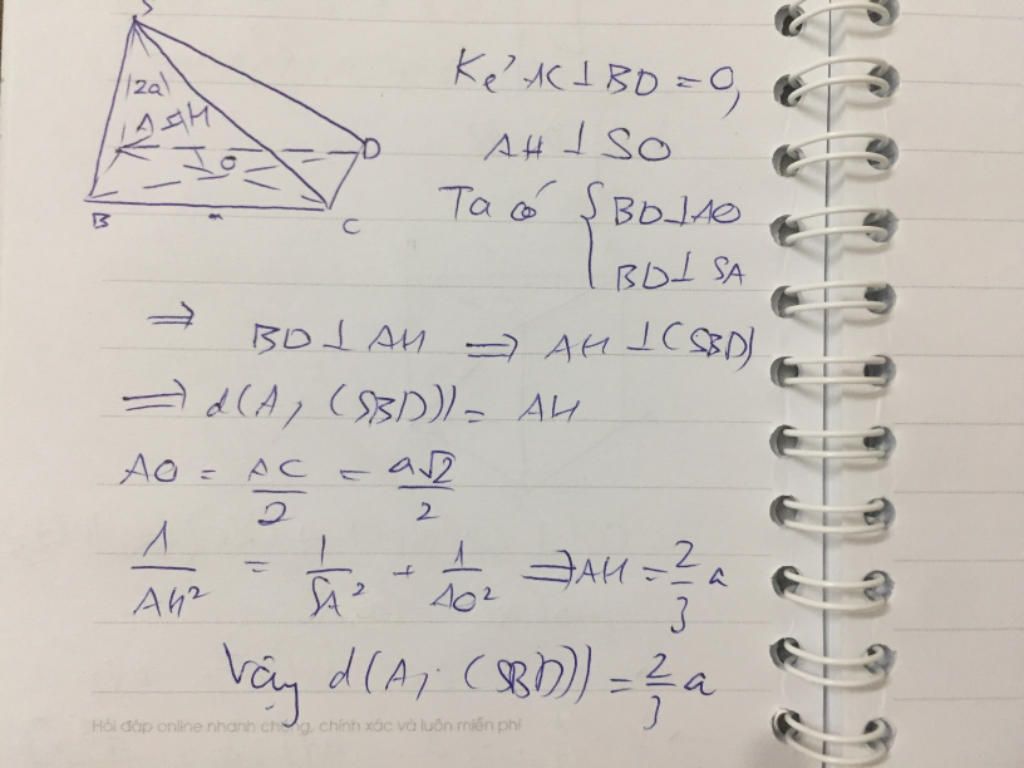 S
2a
A H
O
D
B
a
C
Kẻ AC⊥BD = O,
AH ⊥ SO
Ta có { BD⊥AO
BD⊥ SA
⇒ BD ⊥ AH ⇒ AH ⊥ (SBD)
⇒ d(A, (SBD)) = AH
AO = AC/2 = a√2/2
1/AH² = 1/SA² + 1/AO² ⇒ AH = 2/3 a
Vậy d(A; (SBD)) = 2/3 a
Hỏi đáp online nhanh chóng, chính xác và luôn miễn phí